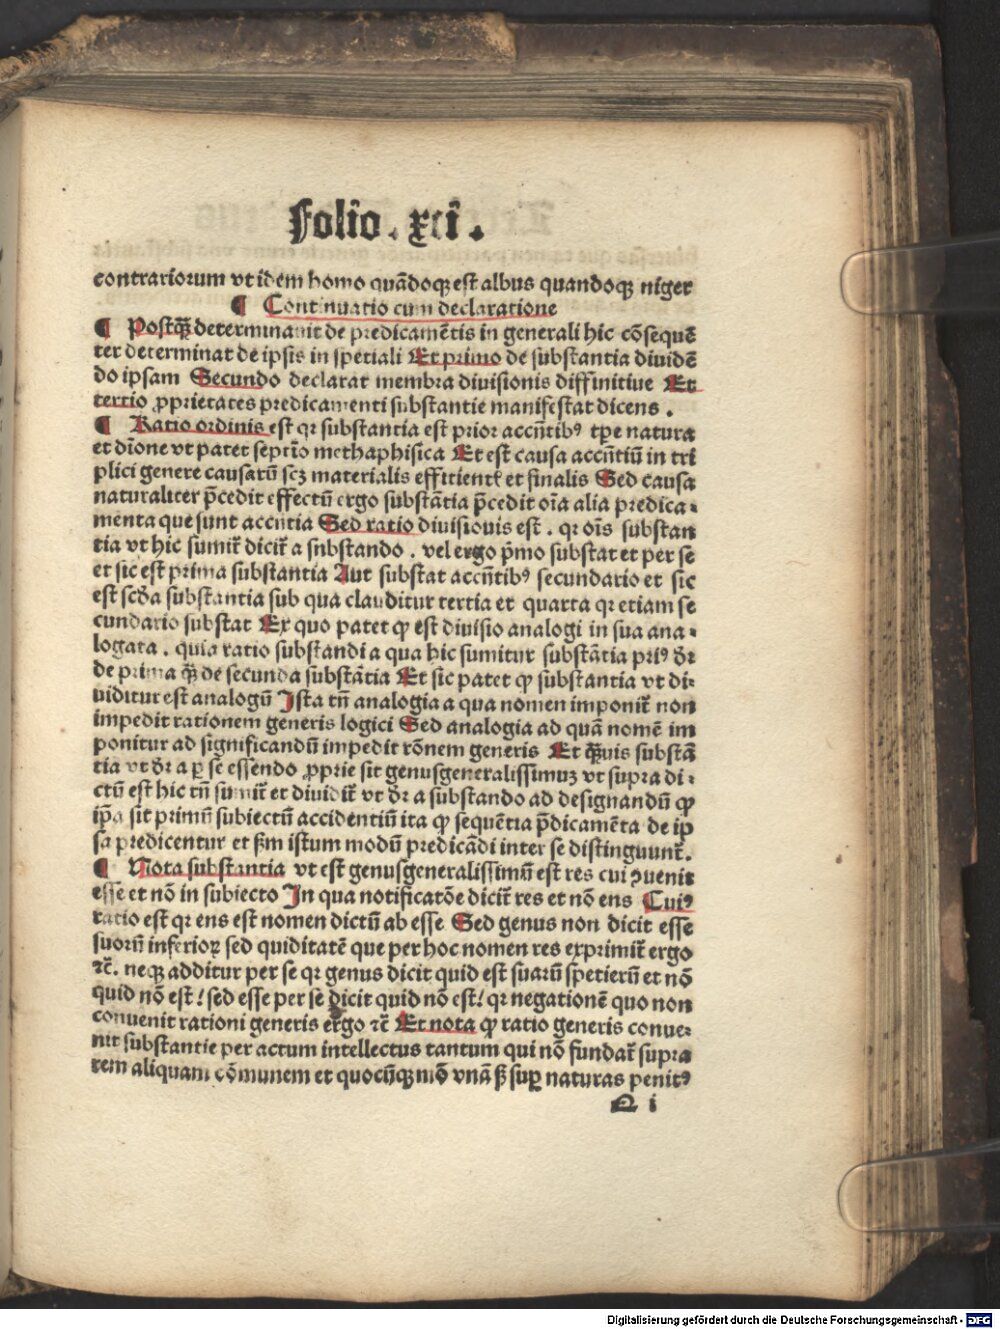 Folio. xci.
contrariorum vt idem homo quādoqꝫ est albus quandoqꝫ niger
¶ Continuatio cum declaratione
¶ Postqꝫ̄ determinauit de predicamētis in generali hic cōsequē
ter determinat de ipsis in spetiali Et primo de substantia diuidē
do ipsam Secundo declarat membra diuisionis diffinitiue Et
tertio ꝓprietates predicamenti substantie manifestat dicens .
¶ Ratio ordinis est qr substantia est prior accn̄tibꝰ tp̄e natura
et dīone vt patet septīo methaphisica Et est causa accn̄tiū in tri
plici genere causarū scꝫ materialis effitientꝭ et finalis Sed causa
naturaliter p̄cedit effectū ergo substātia p̄cedit oīa alia predica⸗
menta que sunt accn̄tia Sed ratio diuisiouis est . qr oīs substan
tia vt hic sumit̄ dicit̄ a snbstando . vel ergo p̄mo substat et per se
et sic est prima substantia Aut substat accn̄tibꝰ secundario et sic
est scd̄a substantia sub qua clauditur tertia et quarta qr etiam se
cundario substat Ex quo patet ꝙ est diuisio analogi in sua ana⸗
logata . quia ratio substandi a qua hic sumitur substātia priꝰ dr̄
de prima qꝫ̄ de secunda substātia Et sic patet ꝙ substantia vt di⸗
uiditur est analogū Ista tn̄ analogia a qua nomen imponit̄ non
impedit rationem generis logici Sed analogia ad quā nomē im
ponitur ad significandū impedit rōnem generis Et qꝫ̄uis substā
tia vt dr̄ a ꝑ se essendo ꝓprie sit genusgeneralissimuꝫ vt supra di⸗
ctū est hic tn̄ sumit̄ et diuidit̄ vt dr̄ a substando ad designandū ꝙ
ip̄a sit primū subiectū accidentiū ita ꝙ sequētia p̄dicamēta de ip
sa predicentur et ẜm istum modū predicādi inter se distinguunt̄.
¶ Nota substantia vt est genusgeneralissimū est res cui ꝯuenit
esse et nō in subiecto In qua notificatōe dicit̄ res et nō ens Cuiꝰ
ratio est qr ens est nomen dictū ab esse Sed genus non dicit esse
suorū inferioꝝ sed quiditatē que per hoc nomen res exprimit̄ ergo
⁊c̄. neqꝫ additur per se qr genus dicit quid est suarū spetierū et nō
quid nō est / sed esse per se dicit quid nō est / qr negationē quo non
conuenit rationi generis ergo ⁊c̄ Et nota ꝙ ratio generis conue⸗
nit substantie per actum intellectus tantum qui nō fundat̄ supra
rem aliquam cōmunem et quocūqꝫ mō vnā ẜ sup̄ naturas penitꝰ
Q i
Digitalisierung gefördert durch die Deutsche Forschungsgemeinschaft - DFG